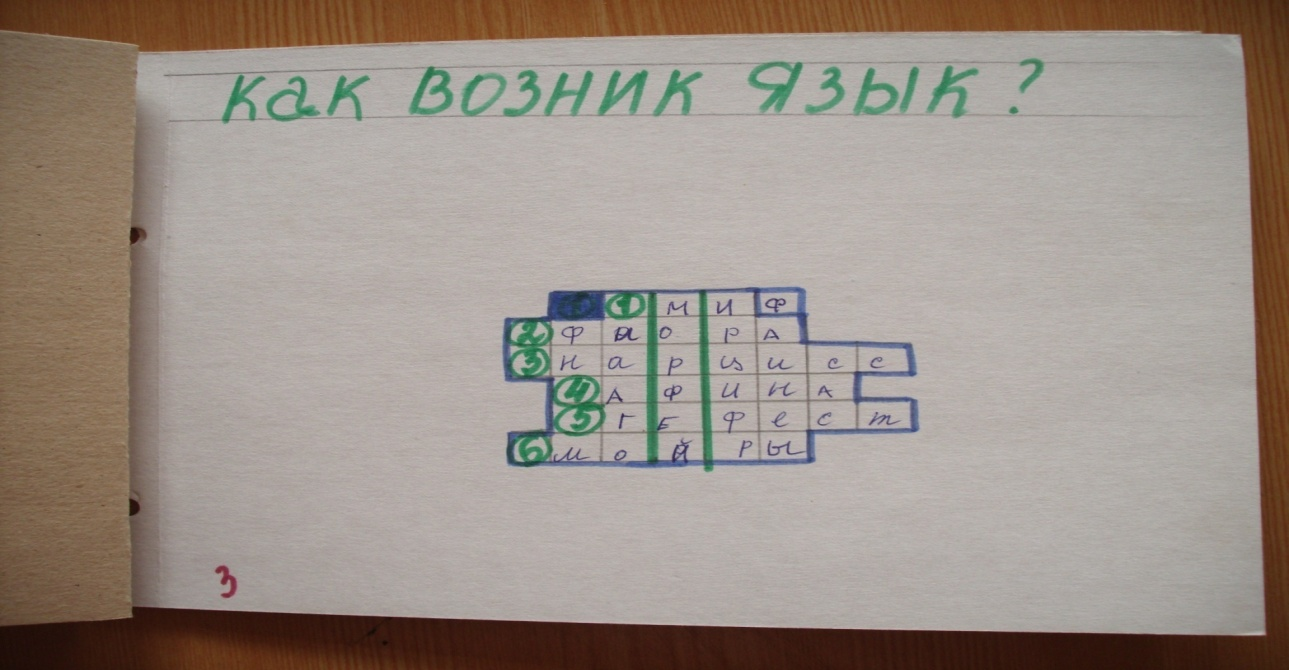 Как возник язык?
1 м и ф
2 ф л о р а
3 н а р ц и с с
4 А ф и н а
5 Г е ф е с т
6 м о й р ы
3